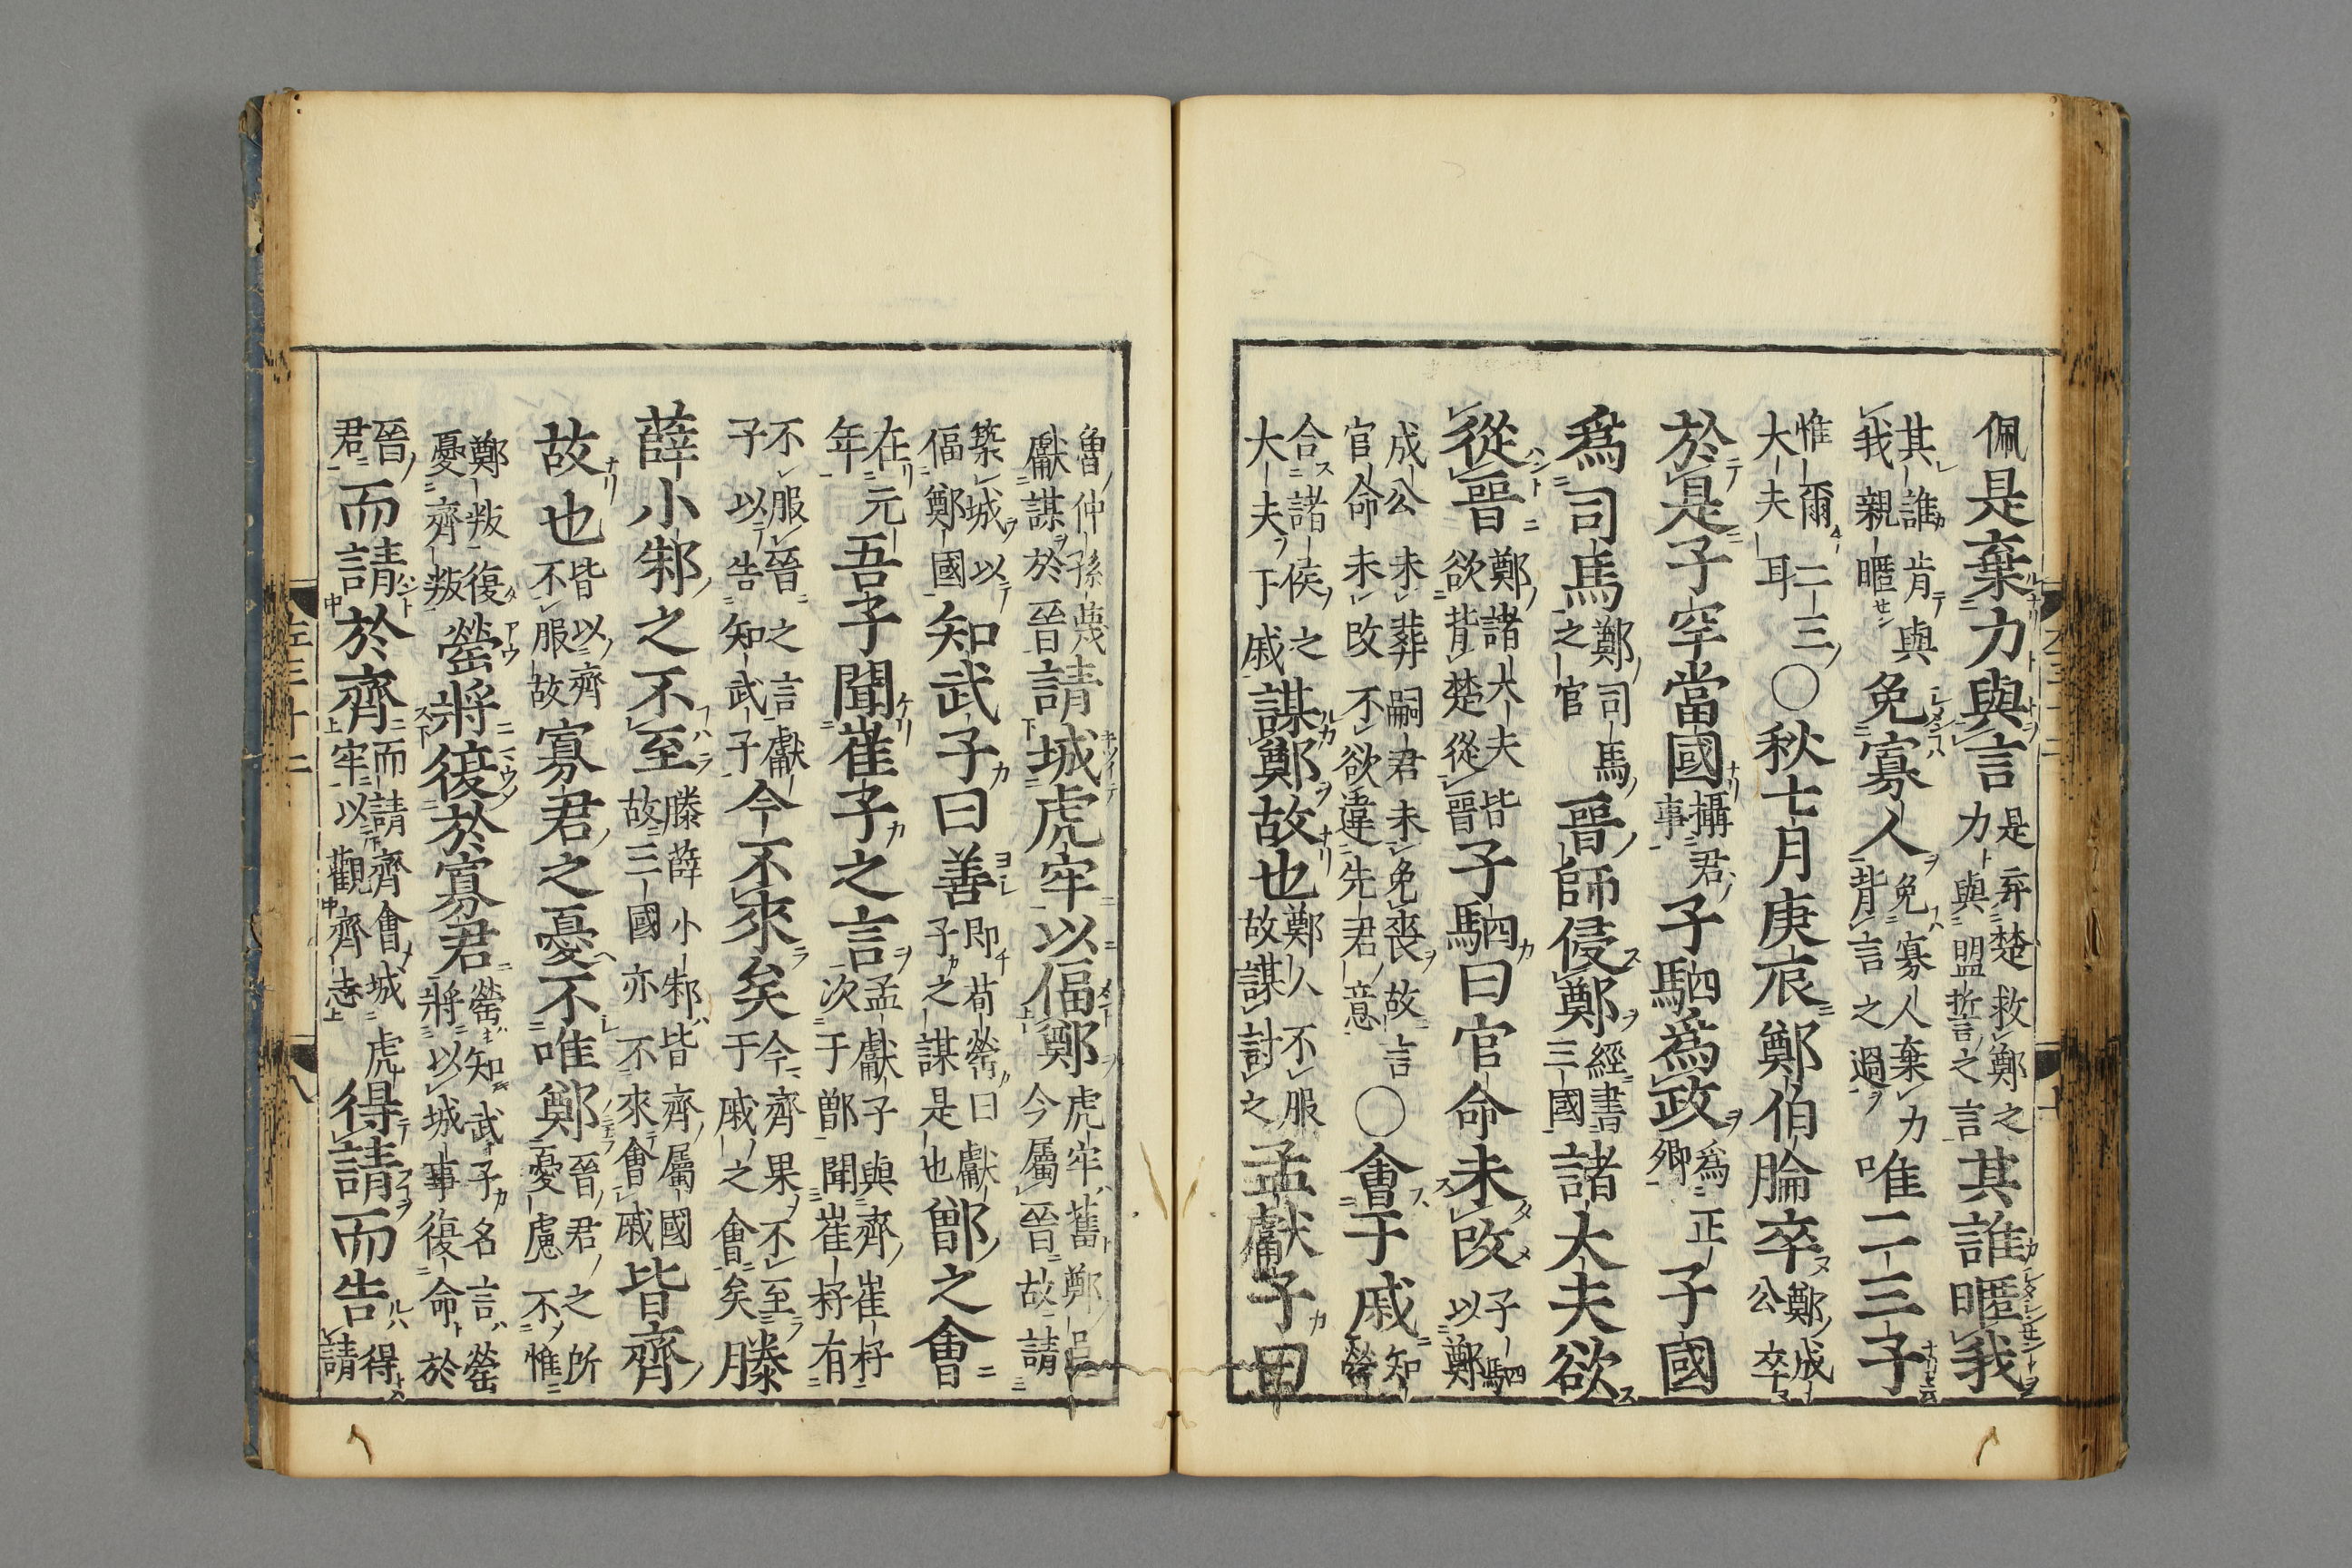 佩是棄力與言是弃楚救鄭之力與盟誓之言其誰暱我
其誰肯與我親暱免寡人免寡人棄力背言之過唯二三子
惟爾二三大夫耳〇秋七月庚辰鄭伯腀卒鄭成公卒
於是子罕當國攝君事子駟爲政爲正卿子國
爲司馬鄭司馬之官晉師侵鄭經書三國諸大夫欲
從晉鄭諸大夫皆欲背楚從晉子駟曰官命未改子駟以鄭
成公未葬嗣君未免喪故言官命未改不欲違先君意〇會于戚知罃
合諸侯之大夫于戚謀鄭故也鄭人不服故謀討之孟獻子曰
魯仲孫蔑獻謀於晉請城虎牢以偪鄭虎牢舊鄭邑今屬晉故請
築城以偪鄭國知武子曰善即荀罃曰獻子之謀是也鄫之會
在元年吾子聞崔子之言孟獻子與齊崔杼次于鄫聞崔杼有
不服晉之言獻子以告知武子今不來矣今齊果不至于戚之會矣滕
薛小邾之不至滕薛小邾皆齊屬國故三國亦不來會戚皆齊
故也皆以齊不服故寡君之憂不唯鄭晉君之所憂慮不惟
鄭叛復憂齊叛罃將復於寡君罃知武子名言罃將以城事復命於
晉君而請於齊而請齊會城虎牢以觀齊志得請而告得請
左三十二
八